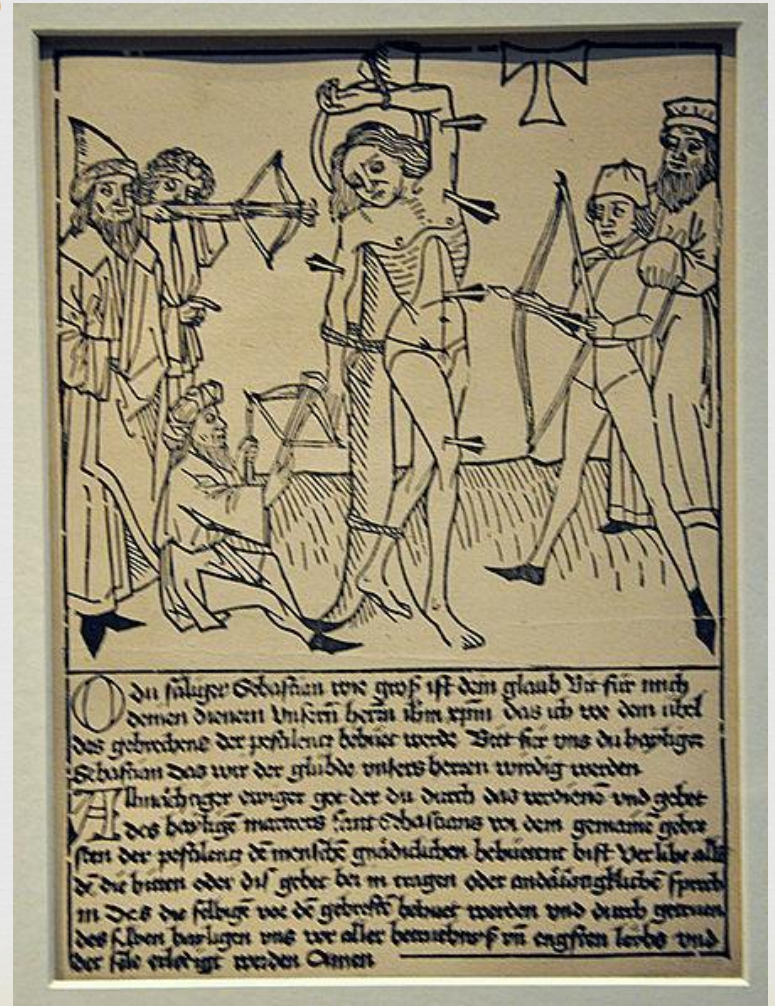 O du säliger Sebastian wie groß ist dein glaub Bit für mich
deinen dienern Vnsern herrn ihm xpm das ich vor dem übel
des gebrechens der pestilentz behüet werde Bitt für vns du hayliger
Sebastian das wir der glübde vnsers herren wirdig werden
Allmächtiger ewiger got der du durch das verdienē vnd gebet
des hayligē martrers sant Sebastians vor dem gemainē gebre
sten der pestilentz dē menschē gnädiclichen behüetent bist Verlihe allē
dē die bitten oder diß gebet bei in tragen oder
in Des die selbigē vor dē gebrestē behuet werden vnd durch getruen
des selben hayligen vns vor aller betruebnuß vñ engsten leibs vnd
der sele erlediget werden Amen